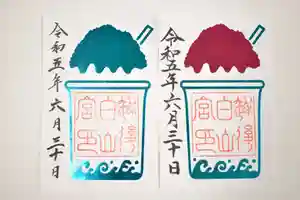 令和五年六月三十日
白山
宮印
令和五年六月三十日
白山
宮印